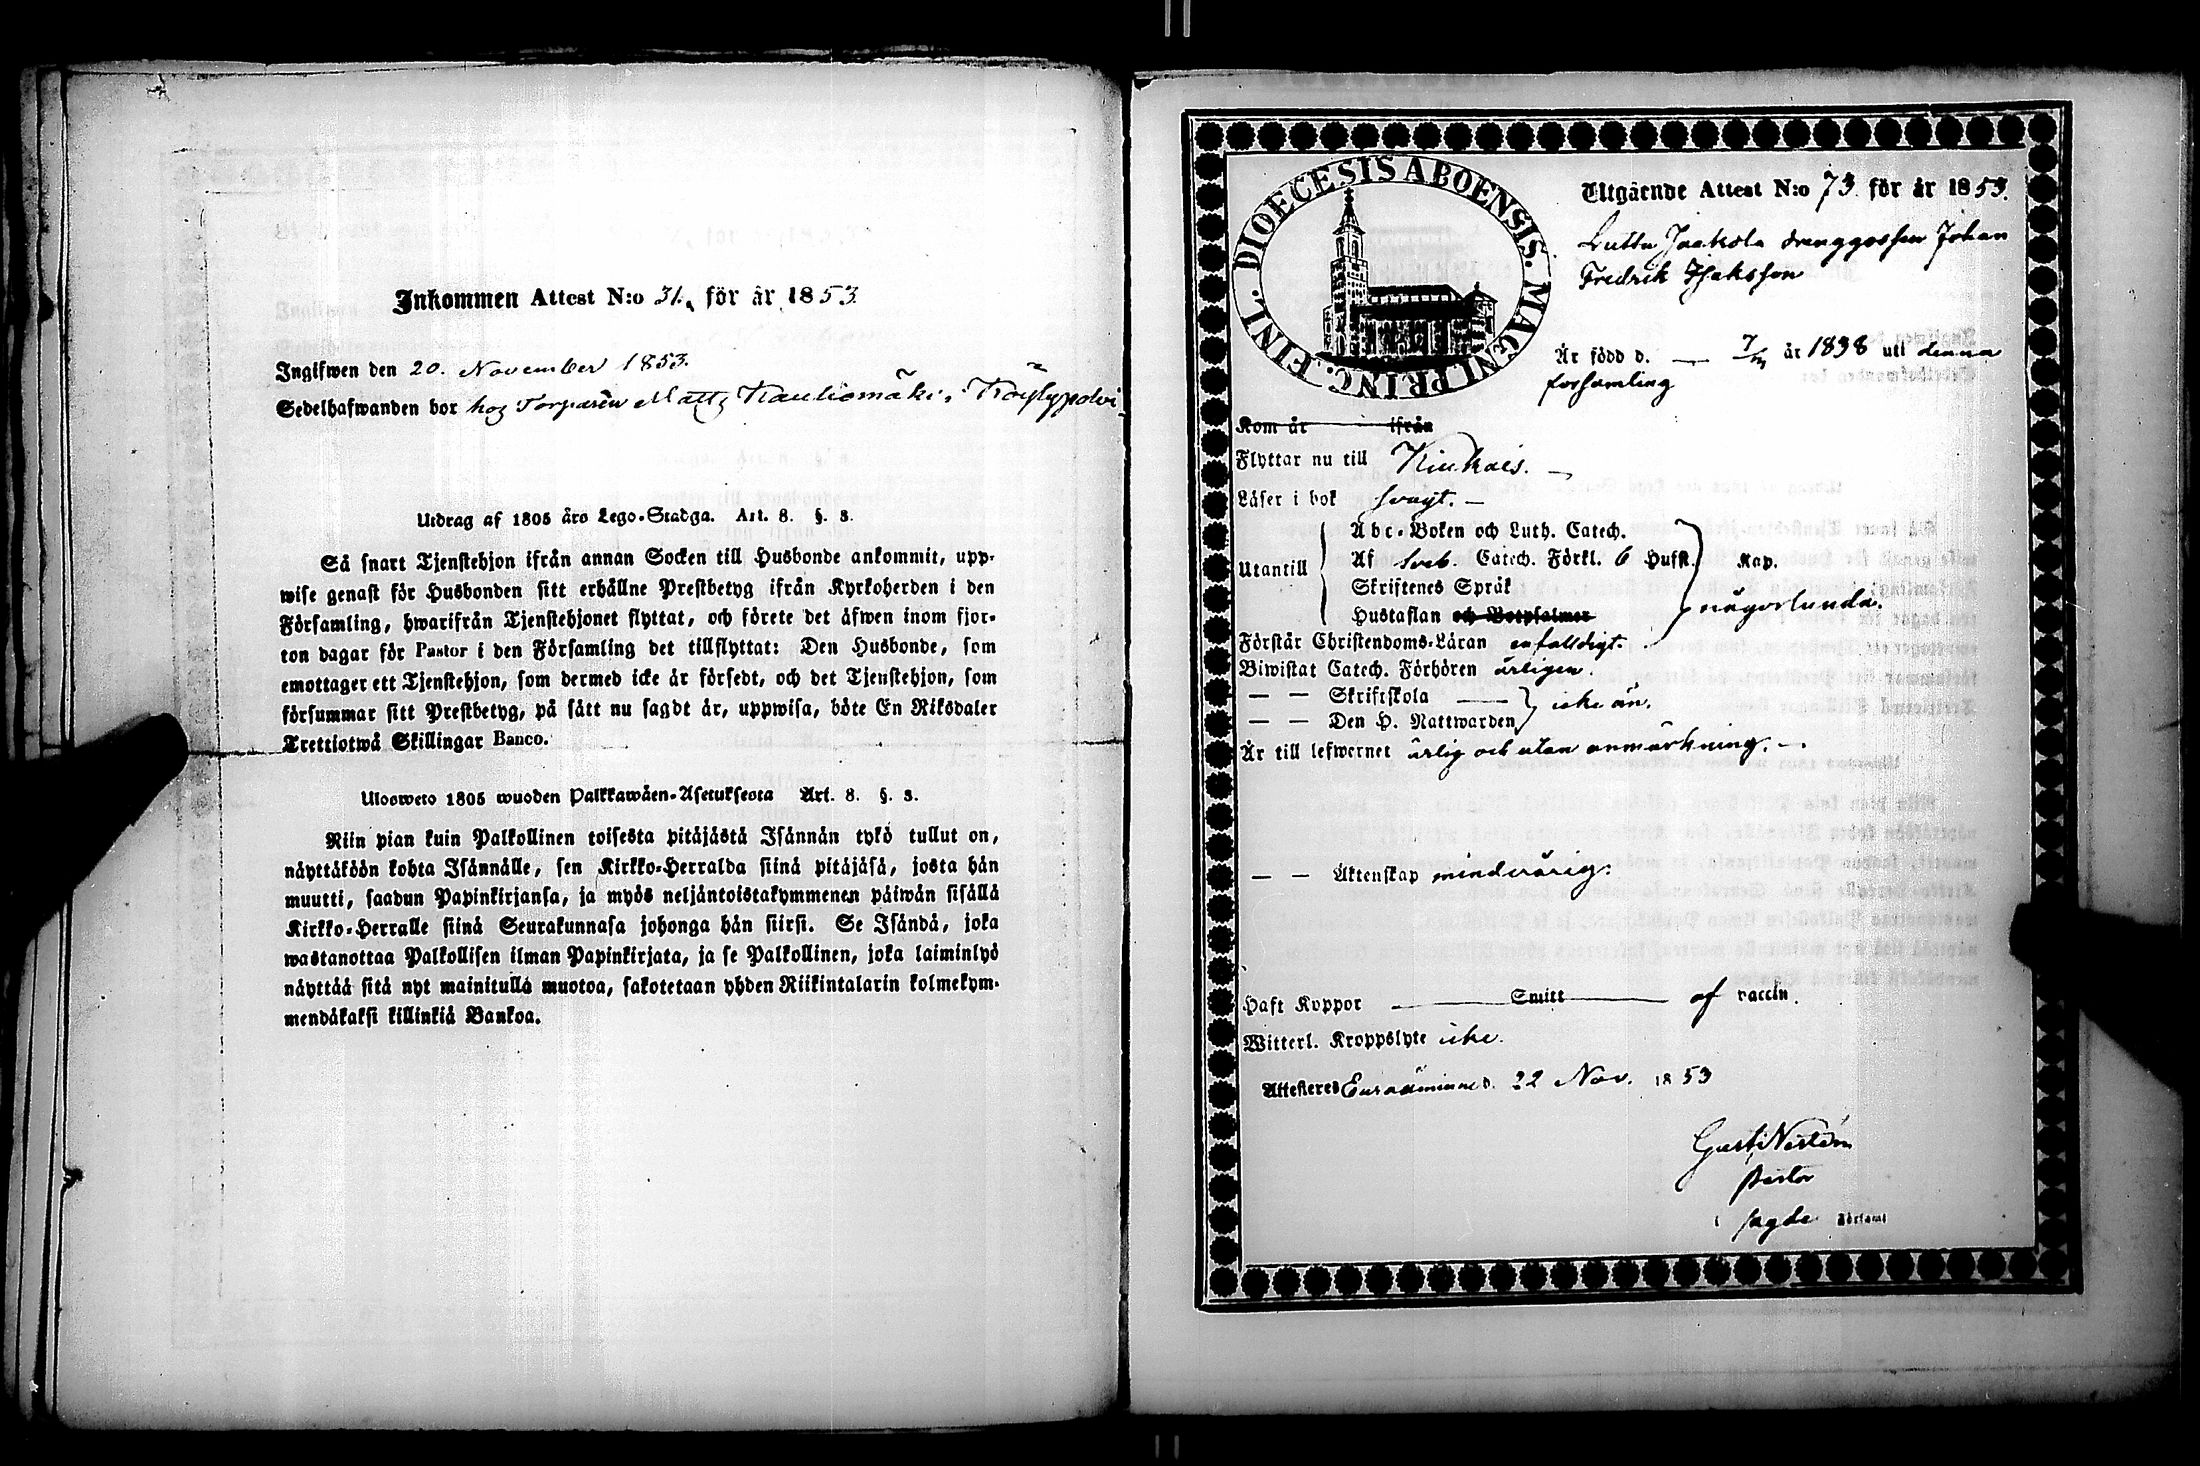 Inkommen Attest N:o 31. för år 1853
Ingifwen den 20. November 1853.
Sedelhafwanden bor hos Torparen Matts Rautiomäki i Köylypolvi
Utdrag af 1805 års Lego-Stadga. Art. 8. §. 3.
Så snart Tjenstehjon ifrån annan Socken till Husbonde ankommit, upp-
wise genast för Husbonden sitt erhållne Prestbetyg ifrån Kyrkoherden i den
Församling, hwarifrån Tjenstehjonet flyttat, och förete det äfwen inom fjor-
ton dagar för Pastor i den Församling det tillflyttat: Den Husbonde, som
emottager ett Tjenstehjon, som dermed icke är försedt, och det Tjenstehjon, som
försummar sitt Prestbetyg, på sätt nu sagdt är, uppwisa, böte En Riksdaler
Trettiotwå Skillingar Banco.
Ulosweto 1805 wuoden Palkkawäen-Asetuksesta Art. 8. §. 3.
Niin pian kuin Palkollinen toisesta pitäjästä Isännän tykö tullut on,
näyttäköön kohta Isännälle, sen Kirkko-Herralda siinä pitäjäsä, josta hän
muutti, saadun Papinkirjansa, ja myös neljäntoistakymmenen päiwän sisällä
Kirkko-Herralle siinä Seurakunnasa johonga hän siirsi. Se Isändä, joka
wastanottaa Palkollisen ilman Papinkirjata, ja se Palkollinen, joka laiminlyö
näyttää sitä nyt mainitulla muotoa, sakotetaan yhden Riikintalarin kolmekym-
mendäkaksi killinkiä Bankoa.
DIOECESIS ABOENSIS. MAGNI PRINC. FINL.
Utgående Attest N:o 73. för år 1853.
Lutta Jaakola drenggossen Johan
Fredrik Isaksson
Är född d. — 7/ år 1838 uti denna
församling
Kom år ifrån
Flyttar nu till Kiukais. —
Läser i bok svagt. —
Utantill
Abc-Boken och Luth. Catech.
Af Sveb. Catech. Förkl. 6 Hufst. Kap.
Skriftenes Språk
Hustaflan och Botpsalmer
någorlunda.
Förstår Christendoms-Läran enfaldigt.
Biwistat Catech. Förhören årligen.
— — Skriftskola —
— — Den H. Nattwarden
icke än.
Är till lefwernet ärlig och utan anmärkning. —
— — Äktenskap minderårig.
Haft Koppor Smitt af vaccin.
Witterl. Kroppslyte icke.
Attesteras Euraåminne d. 22 Nov. 1853
Gust. Nestén
Pastor
i sagde Församl